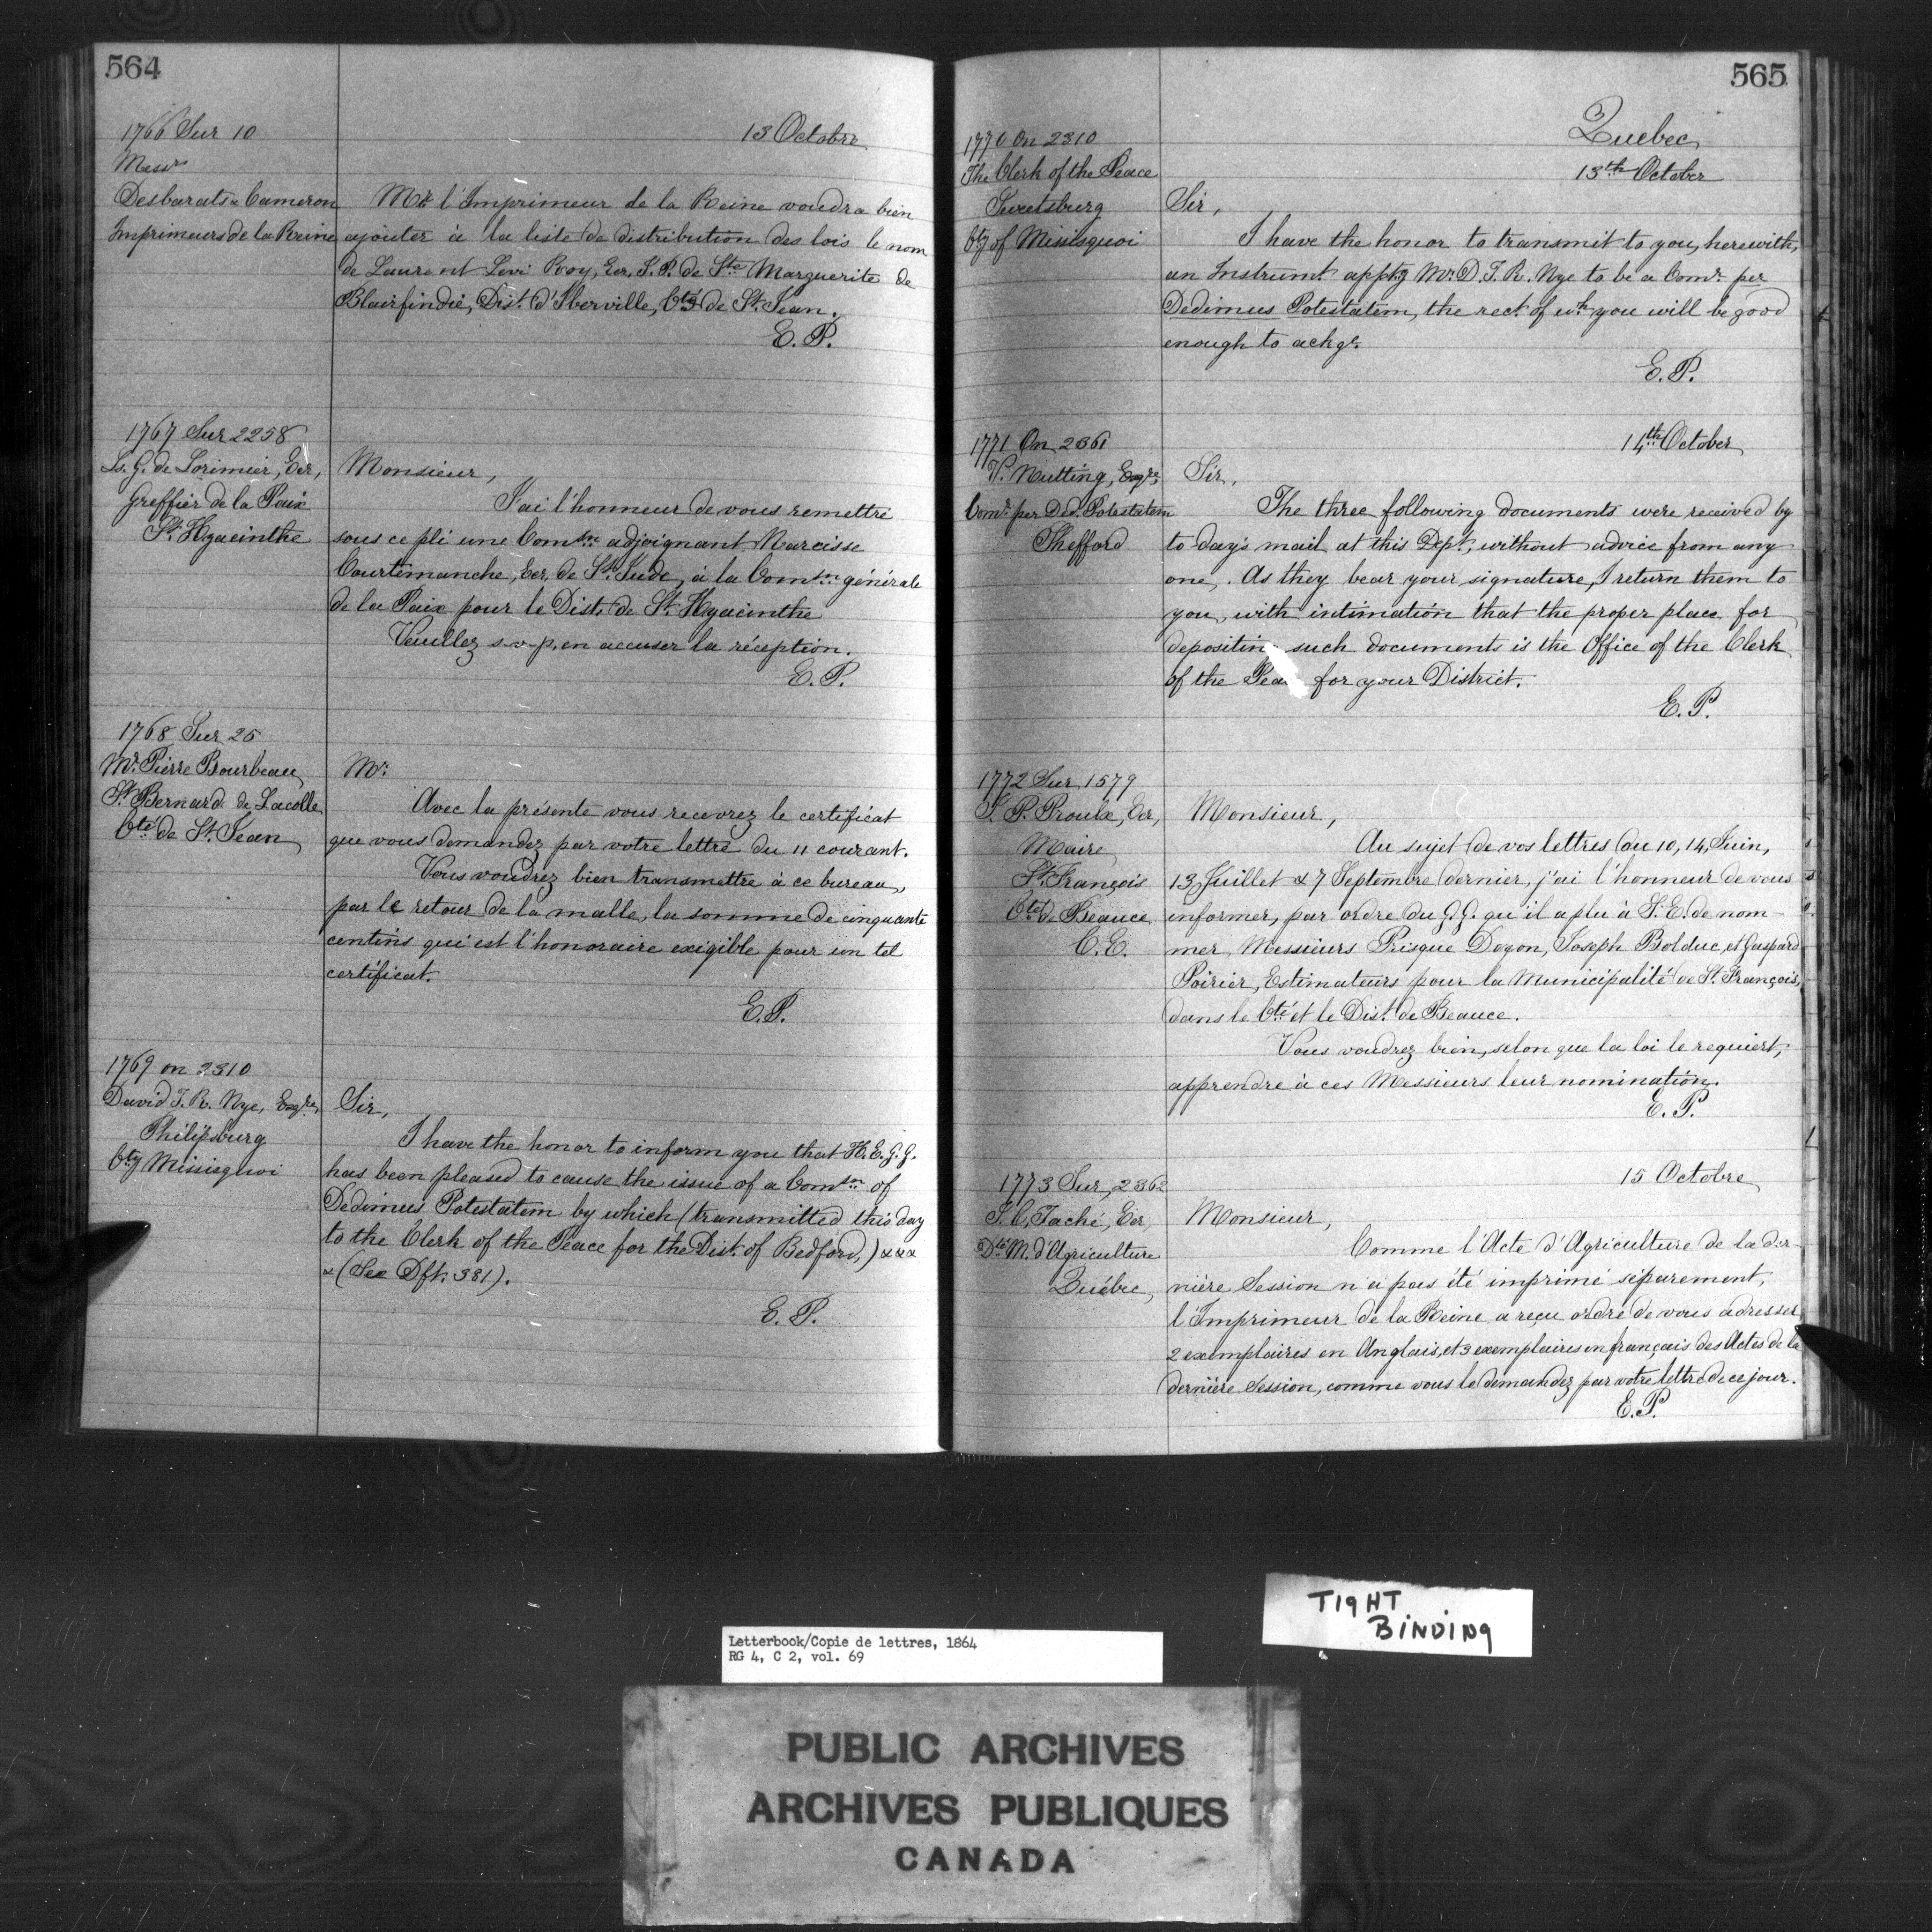 564
1766 Sur 10
13 Octobre
Messrs
Desbarats & Cameron
Imprimeurs de la Reine
Mr l'Imprimeur de la Reine voudra bien
ajouter à la liste de distribution des lois le nom
de Laurent Levi Roy, Ecr, J. P. de Ste Marguerite de
Blairfindie, Dist. d'Iberville, Cté de St. Jean.
E. P.
1767 Sur 2258
Ls. G. de Lorimier, Ecr,
Greffier de la Paix
St. Hyacinthe
Monsieur,
J'ai l'honneur de vous remettre
sous ce pli une Comson adjoignant Narcisse
Courtemanche, Ecr, de St. Jude, à la Comson générale
de la Paix pour le Dist. de St. Hyacinthe
Veuillez s-v-p. en accuser la réception.
E. P.
1768 Sur 25
Mr. Pierre Bourbeau
St. Bernard de Lacolle
Cté de St. Jean
Mr.
Avec la présente vous recevrez le certificat
que vous demandez par votre lettre du 11 courant.
Vous voudrez bien transmettre à ce bureau,
par le retour de la malle, la somme de cinquante
centins qui est l'honoraire exigible pour un tel
certificat.
E. P.
1769 on 2310
David T. R. Nye, Esqre,
Philipsburg
Cty Missisquoi
Sir,
I have the honor to inform you that H. E. G. G.
has been pleased to cause the issue of a Comson of
Dedimus Potestatem by which (transmitted this day
to the Clerk of the Peace for the Dist. of Bedford,) x x x
x (See Dft. 381).
E. P.
565
Quebec
1770 On 2310
13th October
The Clerk of the Peace
Sweetsburg
Cty of Missisquoi
Sir,
I have the honor to transmit to you, herewith,
an Instrumt apptg Mr. D. T. R. Nye to be a Comr. per
Dedimus Potestatem, the rect. of wh you will be good
enough to ackge.
E. P.
1771 On 2361
14th October
V. Nutting, Esqre,
Comr. per Ded. Potestatem
Shefford
Sir,
The three following documents were received by
to-day's mail at this Dept, without advice from any
one,. As they bear your signature, I return them to
you, with intimation that the proper place for
depositin such documents is the Office of the Clerk
of the Pea for your District.
E. P.
1772 Sur 1579
J. P. Proulx, Ecr,
Maire
St. François
Cté de Beauce
C. E.
Monsieur,
Au sujet de vos lettres du 10, 14, Juin,
13 Juillet & 7 Septembre dernier, j'ai l'honneur de vous
informer, par ordre du G. G. qu'il a plu à S. E. de nom-
mer, Messieurs Prisque Doyon, Joseph Bolduc, et Gaspard
Poirier, Estimateurs pour la Municipalité de St. François,
dans le Cté et le Dist. de Beauce.
Vous voudrez bien, selon que la loi le requiert,
apprendre à ces Messieurs leur nomination.
E. P.
1773 Sur 2362
15 Octobre
J. C. Taché, Ecr,
Dté M. d'Agriculture
Québec,
Monsieur,
Comme l'Acte d'Agriculture de la der-
nière Session n'a pas été imprimé séparement,
l'Imprimeur de la Reine a reçu ordre de vous adresser
2 exemplaires en Anglais, et 3 exemplaires en français des Actes de la
dernière Session, comme vous le demandez par votre lettre de ce jour.
E. P.
TIGHT
BINDING
Letterbook/Copie de lettres, 1864
RG 4, C 2, vol. 69
PUBLIC ARCHIVES
ARCHIVES PUBLIQUES
CANADA